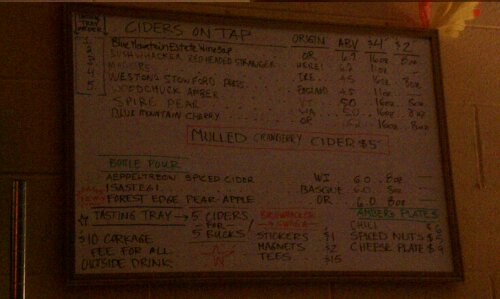 TASTING TRAY ORDER
CIDERS ON TAP ORIGIN ABV $4 $2
Blue Mountain Estate Winesap OR 6.7 16oz 8oz
BUSHWHACKER REDHEADED STRANGER HERE! 6.2 11oz
MAGNERS IRE. 4.5 16oz 8oz
WESTONS STOWFORD PRESS ENGLAND 4.5 11oz
WOODCHUCK AMBER VT 5.0 16oz 8oz
SPIRE PEAR WA 5.0 16oz 8oz
BLUE MOUNTAIN CHERRY OR 16oz 8oz
MULLED CRANBERRY CIDER $5
BOTTLE POUR
AEPPELTREOW SPICED CIDER WI 6.0 8oz
ISASTEGI BASQUE 6.0 8oz
FOREST EDGE PEAR-APPLE OR 6.0 8oz
TASTING TRAY → 5 CIDERS FOR 5 BUCKS!
$10 CORKAGE FEE FOR ALL OUTSIDE DRINK
BUSHWHACKER SWAG
STICKERS $1
MAGNETS $2
TEES $15
PLATES
CHILI $6
SPICED NUTS $5
CHEESE PLATE $9